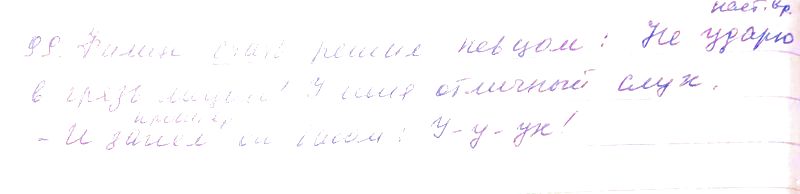 наст. вр.
99. Филин стать решил певцом: Не ударю
в грязь лицом! У меня отличный слух.
- И запел он басом: У-у-ух!